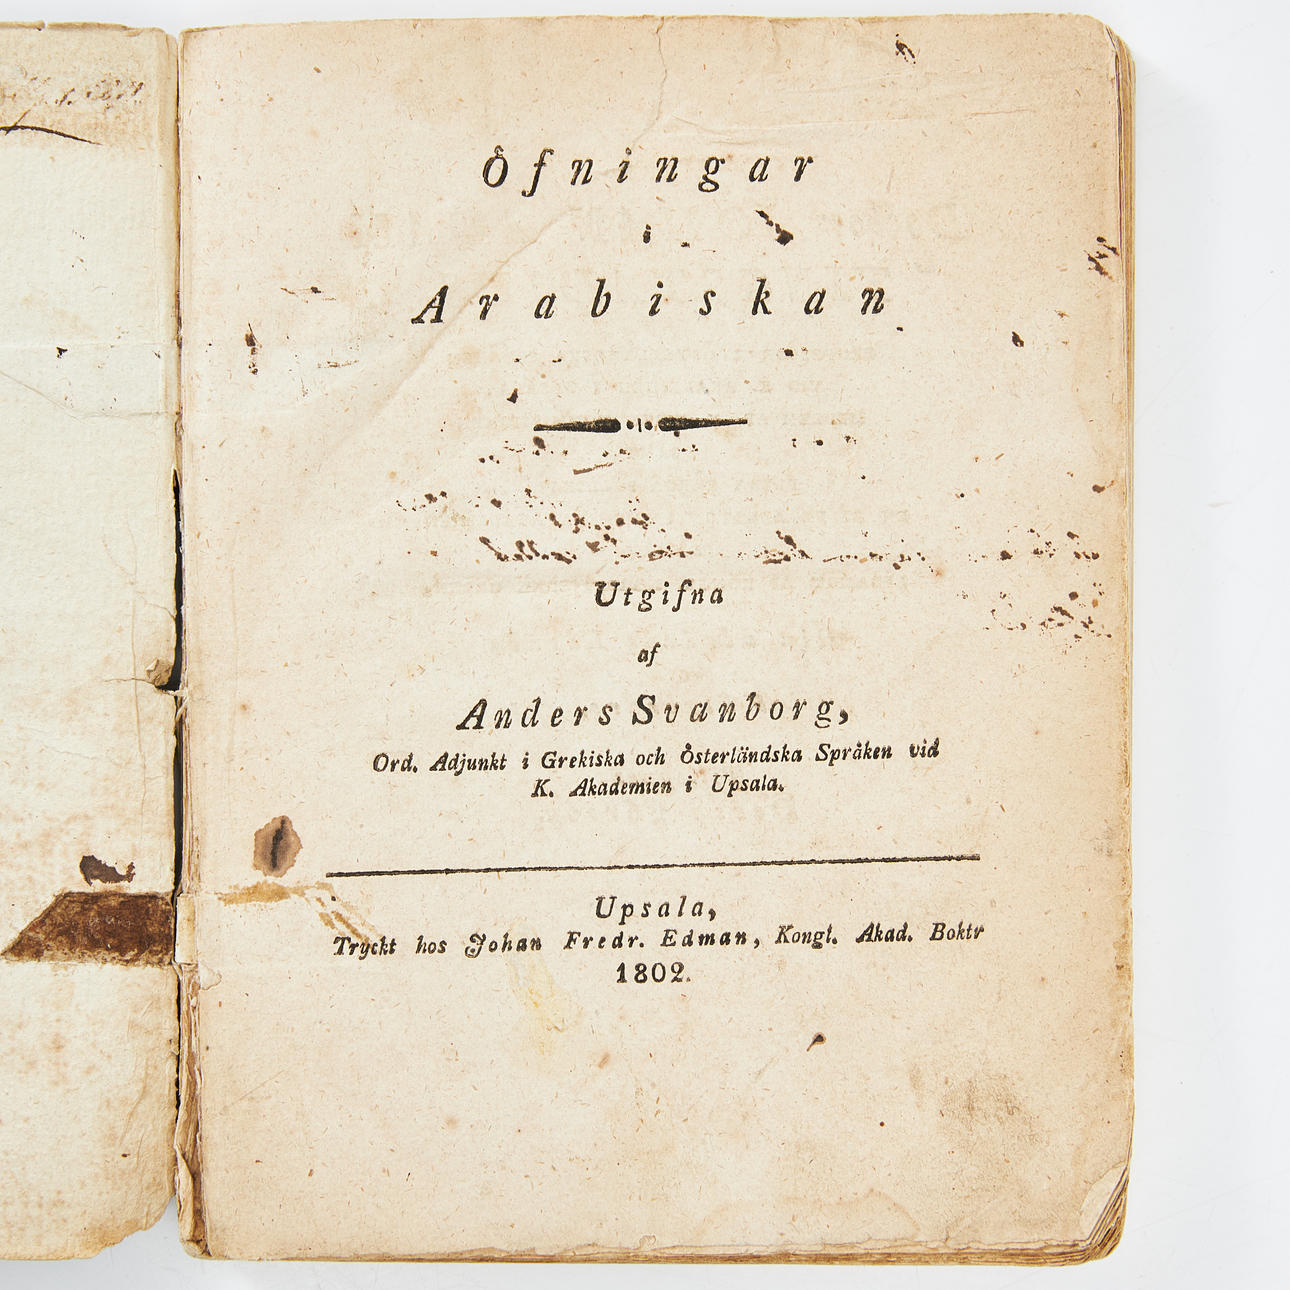 Öfningar
i
Arabiskan
Utgifna
af
Anders Svanborg,
Ord. Adjunkt i Grekiska och Österländska Språken vid
K. Akademien i Upsala.
Upsala,
Tryckt hos Johan Fredr. Edman, Kongl. Akad. Boktr
1802.